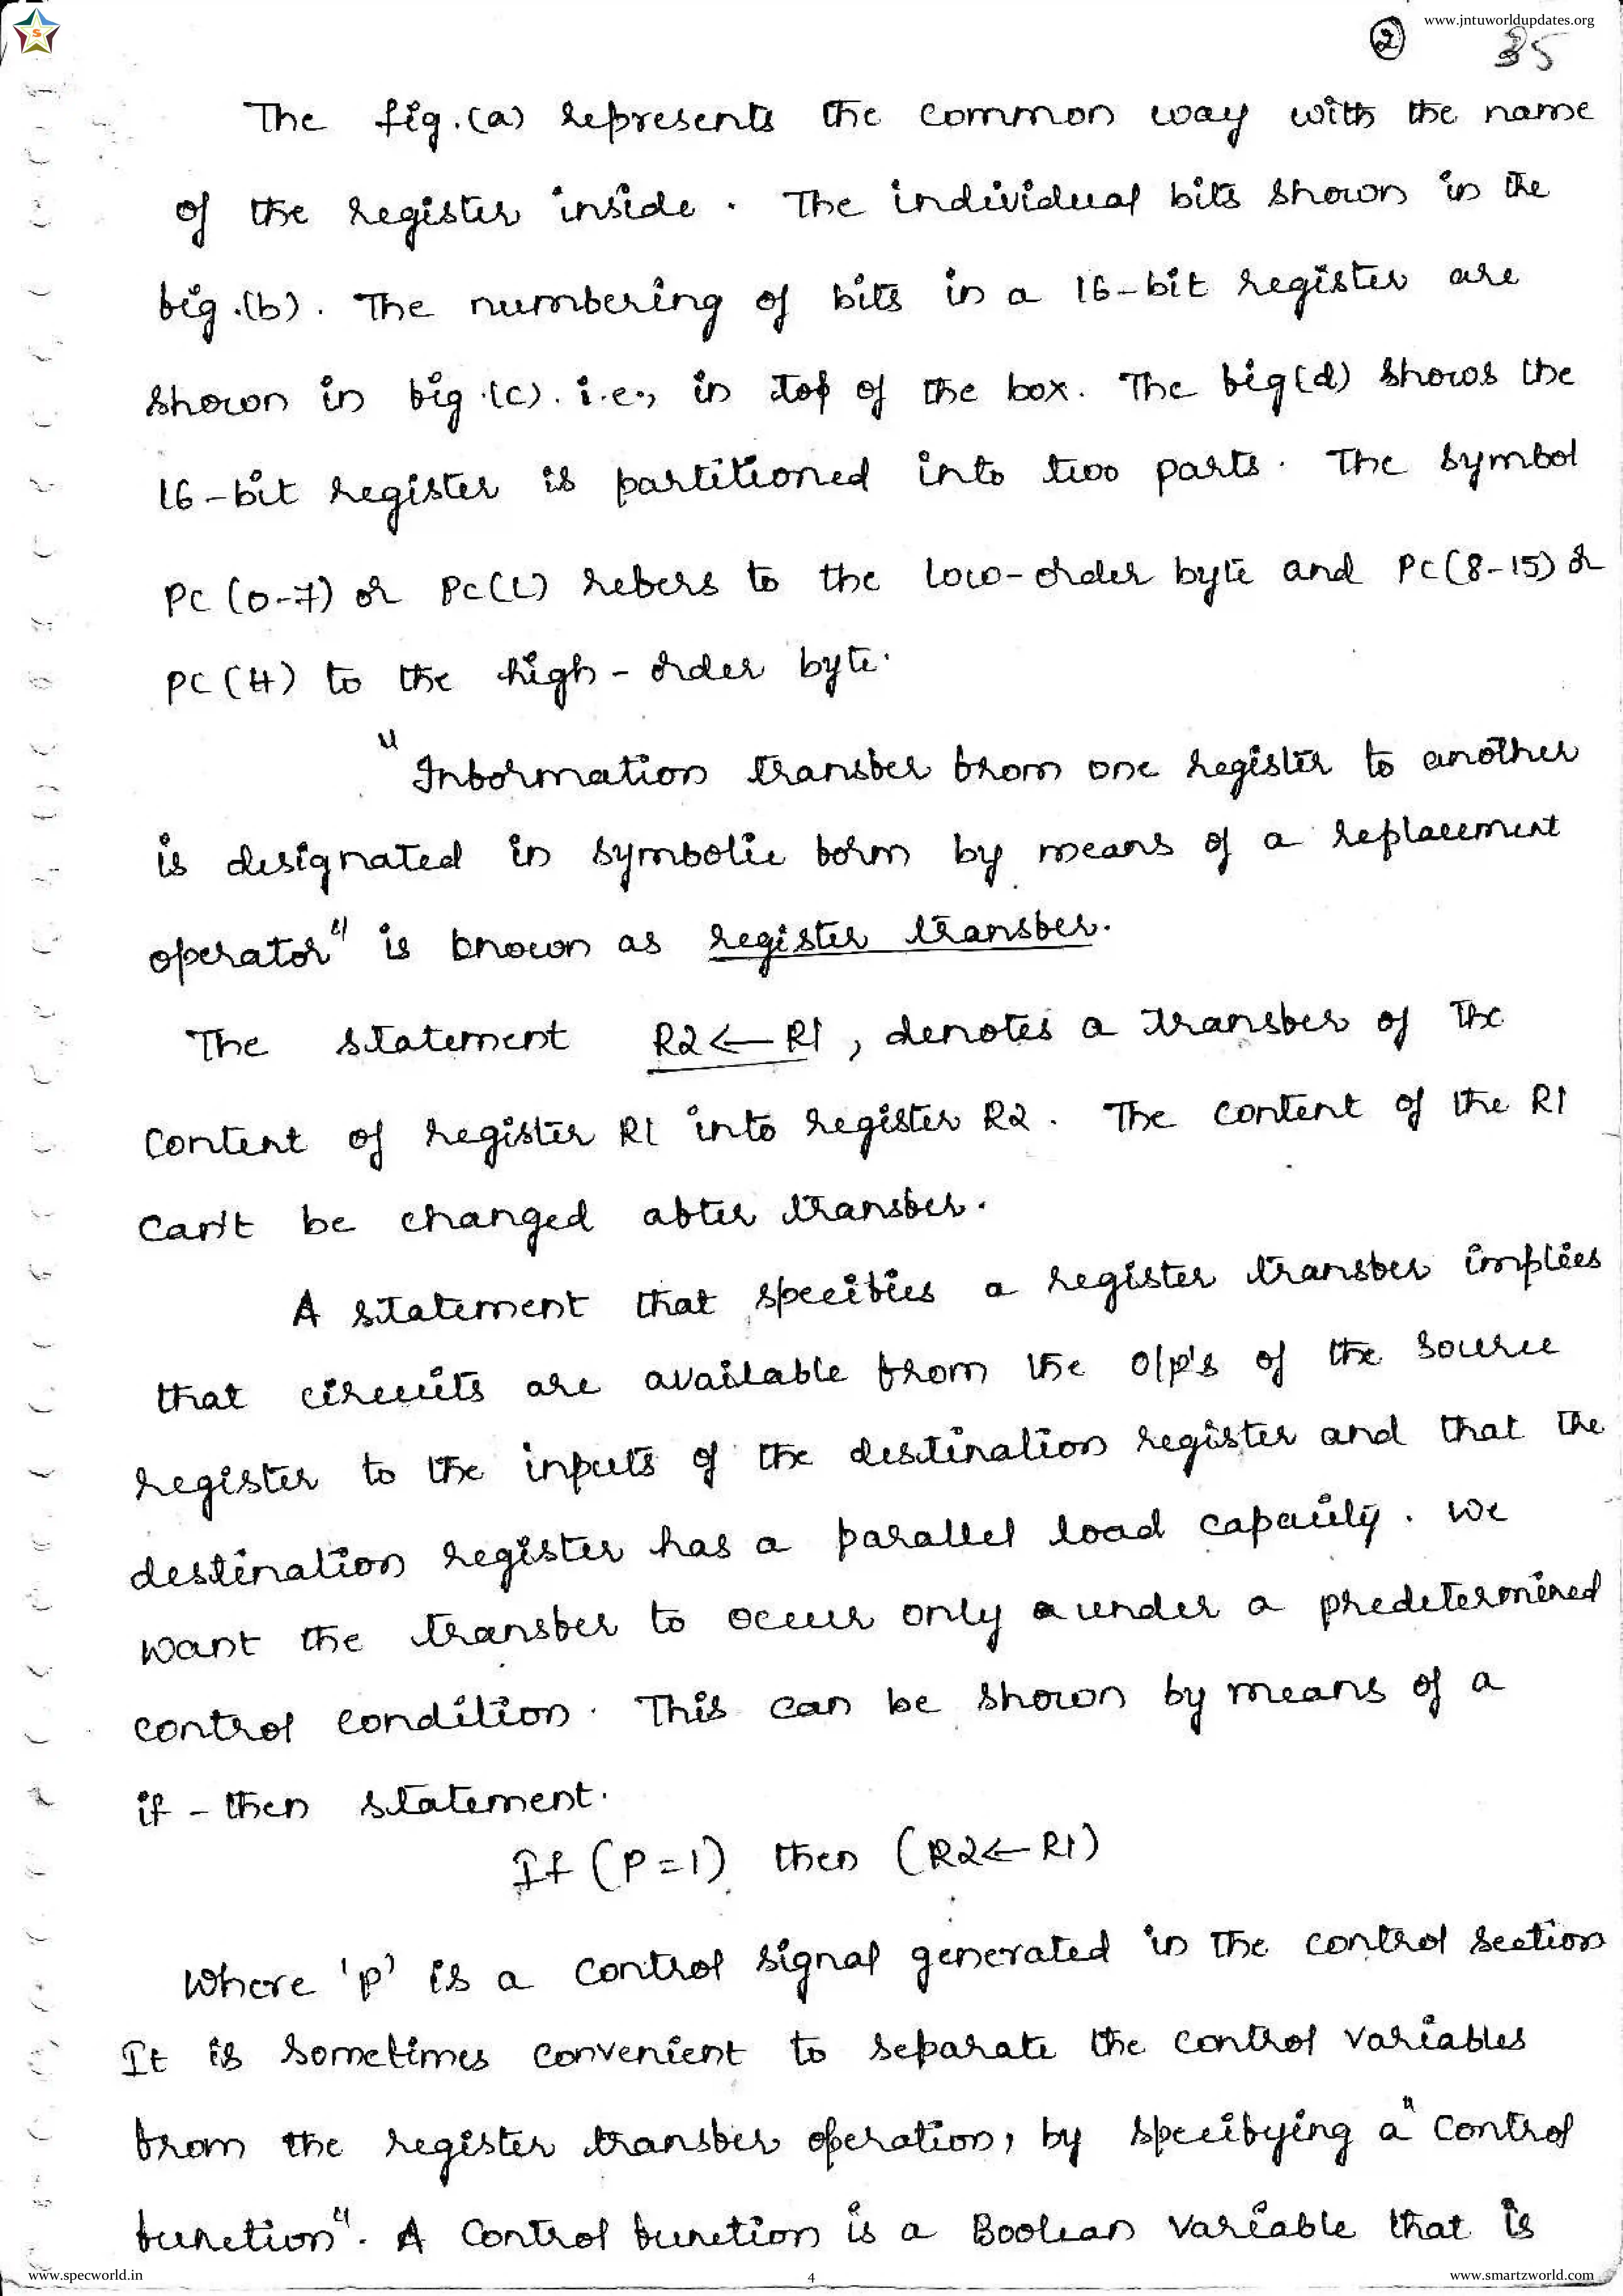 www.jntuworldupdates.org
2 35
The fig.(a) represents the common way with the name
of the register inside. The individual bits shown in the
fig.(b). The numbering of bits in a 16-bit register are
shown in fig.(c). i.e., in top of the box. The fig(d) shows the
16-bit register is partitioned into two parts. The symbol
PC(0-7) or PC(L) refers to the low-order byte and PC(8-15) or
PC(H) to the high-order byte.
"Information transfer from one register to another
is designated in symbolic form by means of a replacement
operator" is known as register transfer.
The statement R2←R1, denotes a transfer of the
Content of register R1 into register R2. The content of the R1
Can't be changed after transfer.
A statement that specifies a register transfer implies
that circuits are available from the o/p's of the source
register to the inputs of the destination register and that the
destination register has a parallel load capacity. We
want the transfer to occur only under a predetermined
control condition. This can be shown by means of a
if-then statement.
If (P=1) then (R2←R1)
Where 'P' is a control signal generated in the control section
It is sometimes convenient to separate the control variables
from the register transfer operation, by specifying a "control
function". A control function is a Boolean variable that is
www.specworld.in 4 www.smartzworld.com